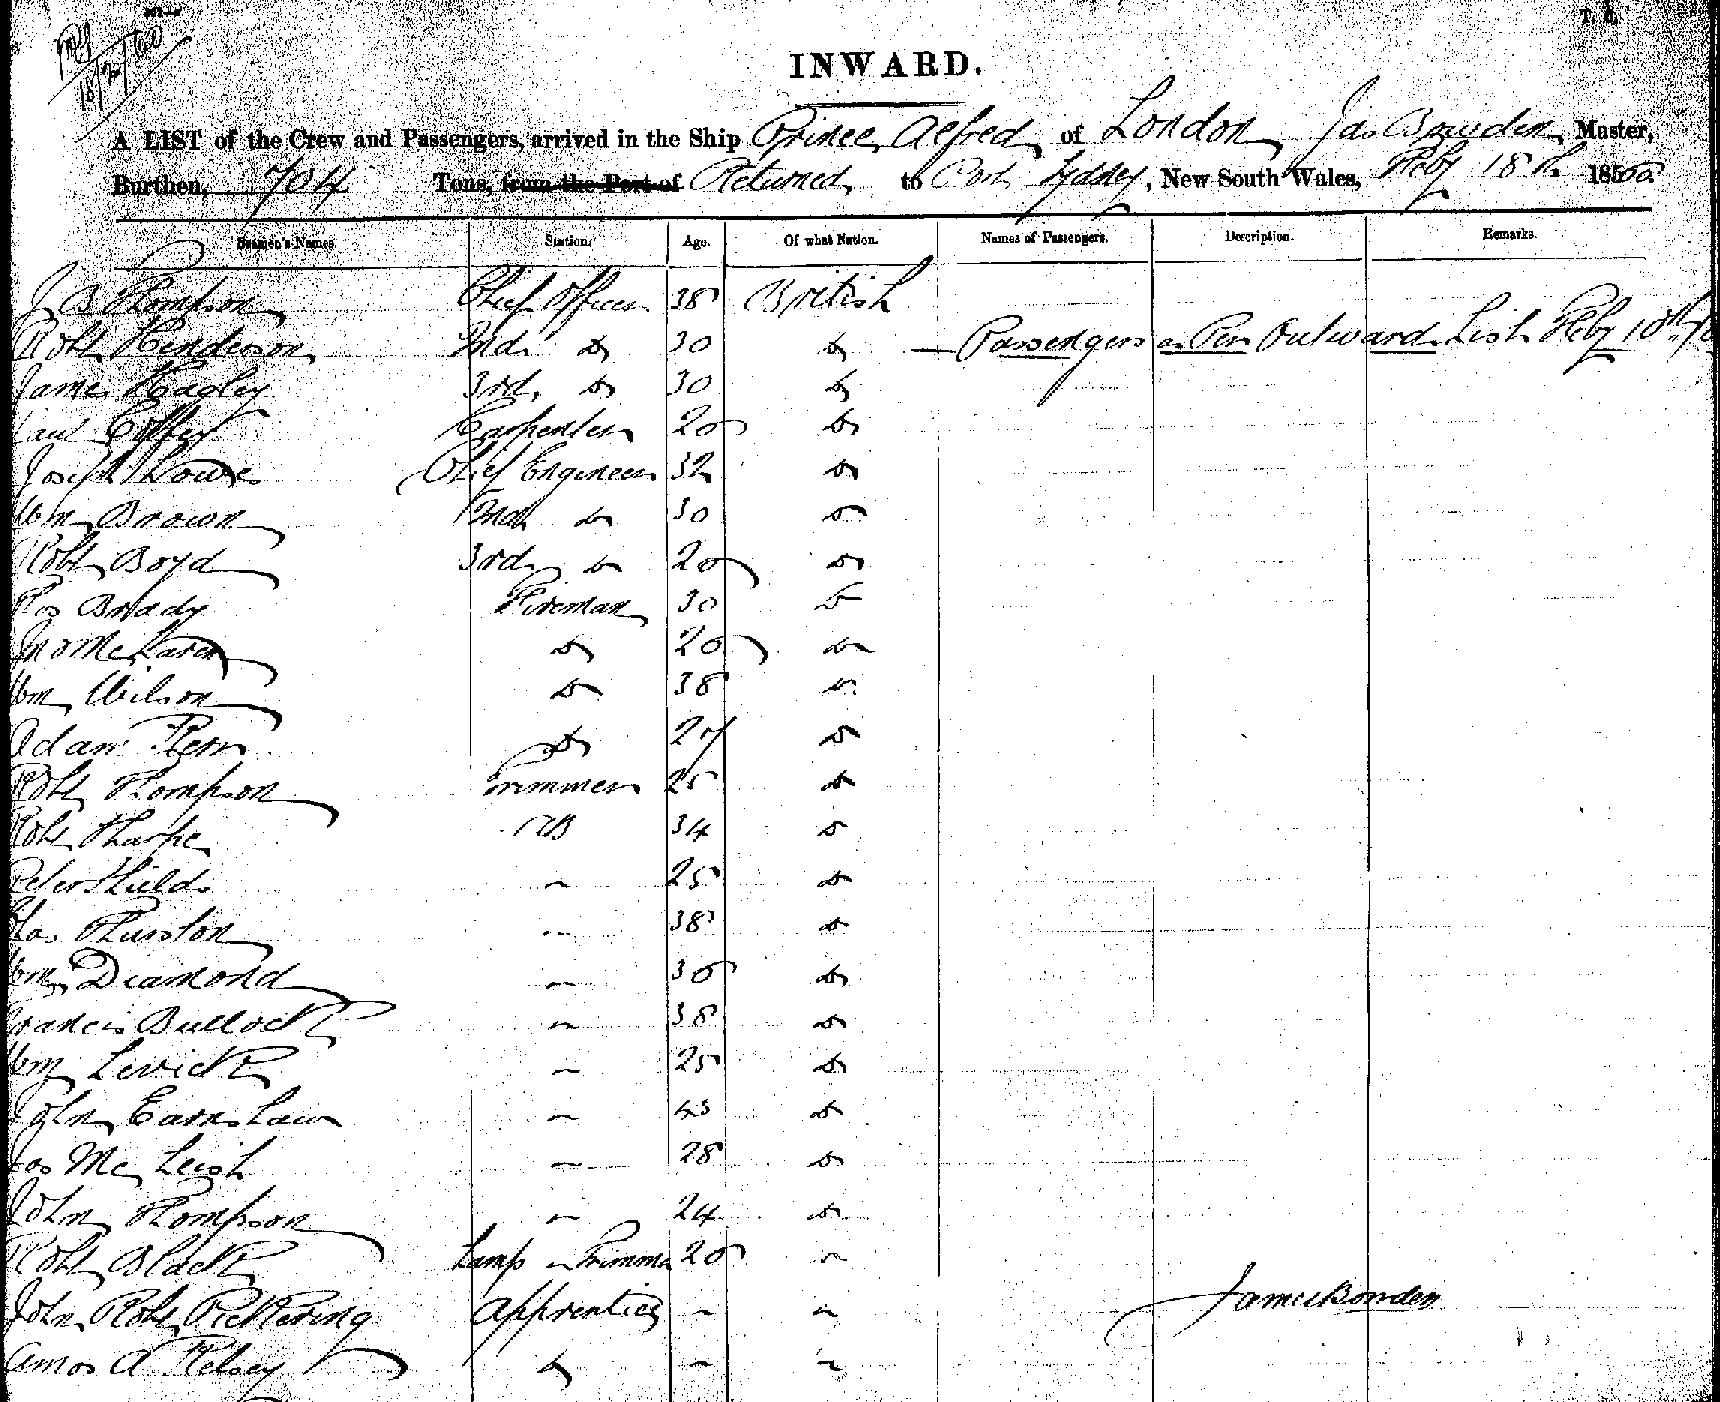 18/2/60
INWARD.
A LIST of the Crew and Passengers, arrived in the Ship Prince Alfred of London, Jas Bowden, Master,
Burthen, 704 Tons, from the Port of Returned to Port Sydney, New South Wales, Feby 18th 1860.
Seamen's Names Station. Age. Of what Nation. Names of Passengers. Description. Remarks.
J B Thompson Chief Officer 38 British
Robt Henderson 2nd do 30 do Passengers as Per Outward List Feby 10th
James 3rd do 30 do
Carpenter do
Joseph Lowe Chief Engineer 32 do
Wm Brown 2nd do 30 do
Robt Boyd 3rd do do
Thos Brady Fireman 30 do
Jno McLaren do do
Wm Wilson do 38 do
Adam do 27 do
Robt Thompson Trimmer 25 do
Robt Tharpe AB 34 do
Peter Shields " 25 do
Thurston " 38 do
Wm Diamond " do
Francis Bullock " 38 do
Wm Levick " 25 do
John Earnshaw " do
Jas McLeish " 28 do
John Thompson " 24 do
Robt Black Lamp Trimmer "
John Robt Pickering Apprentice " "
James Bowden
Amos A Kelsey do " "